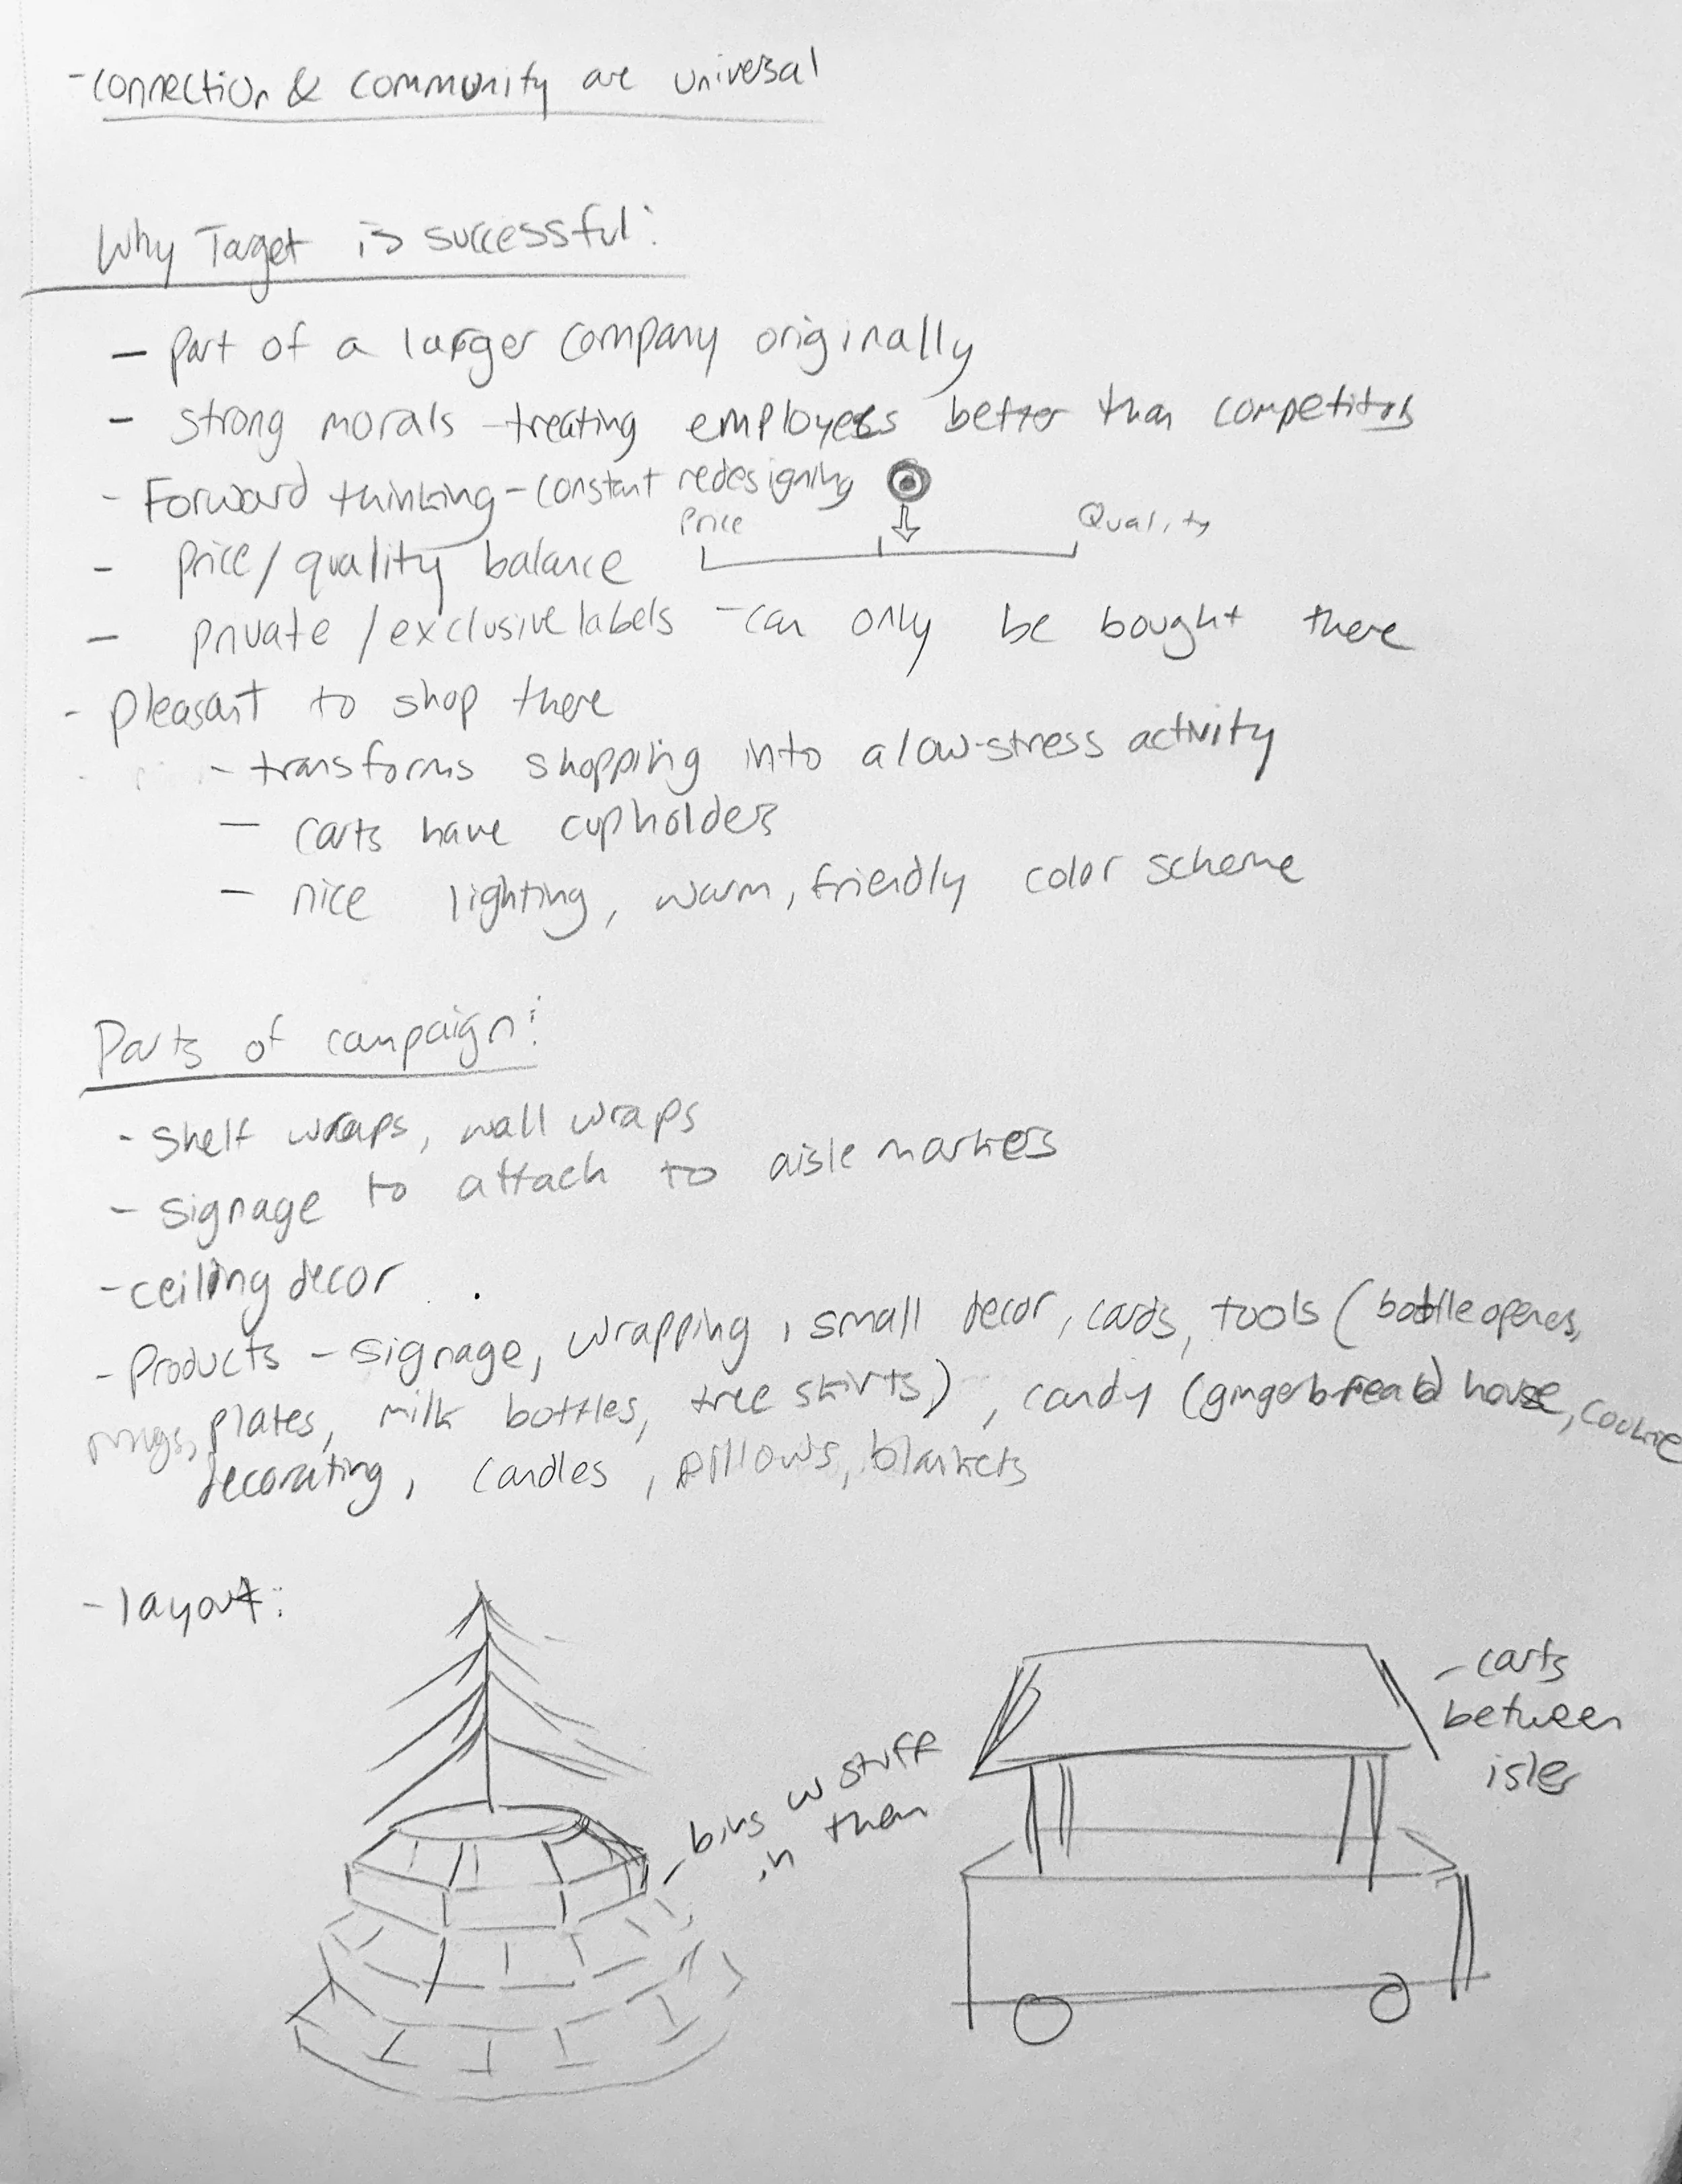 - connection & community are universal
Why Target is successful:
- part of a larger company originally
- strong morals - treating employees better than competitors
- Forward thinking - constant redesigning
Price
Quality
- price/quality balance
- private/exclusive labels - can only be bought there
- pleasant to shop there
- transforms shopping into a low-stress activity
- carts have cupholders
- nice lighting, warm, friendly color scheme
Parts of campaign:
- shelf wraps, wall wraps
- signage to attach to aisle markers
- ceiling decor
- Products - signage, wrapping, small decor, cards, tools (bottle openers,
mugs, plates, milk bottles, tree skirts), candy (gingerbread house, cookie
decorating, candles, pillows, blankets
- layout:
- bins w stuff
in them
- carts
between
isles